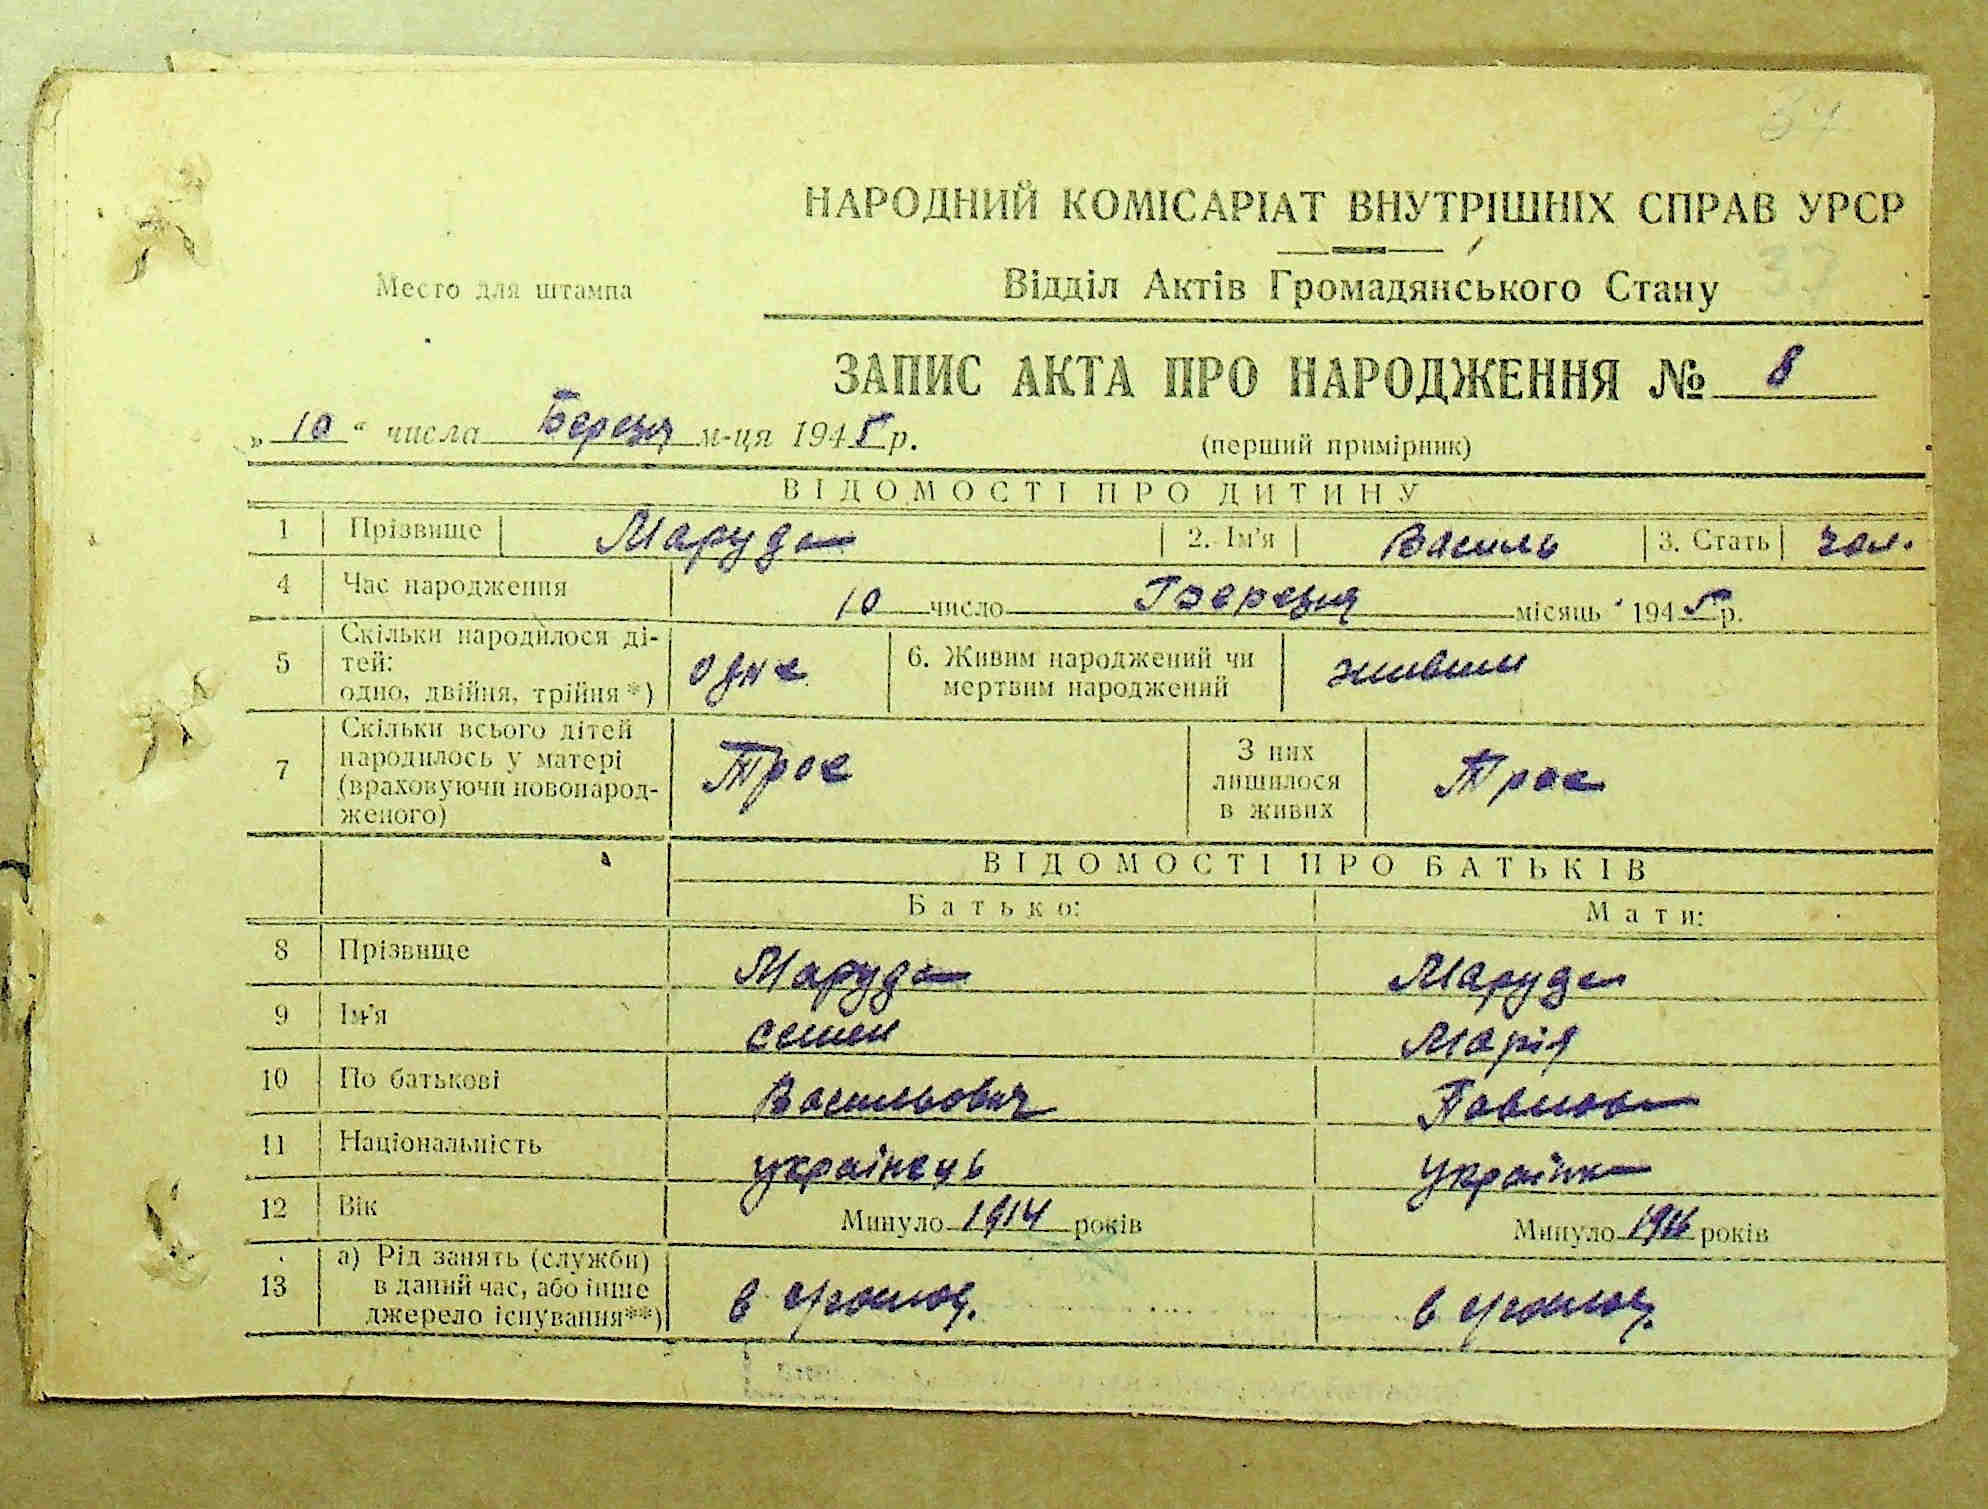 37
НАРОДНИЙ КОМІСАРІАТ ВНУТРІШНІХ СПРАВ УРСР
Место для штампа
Відділ Актів Громадянського Стану
ЗАПИС АКТА ПРО НАРОДЖЕННЯ № 8
„ 10 “ числа Березня м-ця 1945 р.
(перший примірник)
ВІДОМОСТІ ПРО ДИТИНУ
1 Прізвище Маруда 2. Ім'я Василь 3. Стать чол.
4 Час народження 10 число Березня місяць 1945 р.
5 Скільки народилося ді-
тей:
одно, двійня, трійня *) одне 6. Живим народжений чи
мертвим народжений живим
7 Скільки всього дітей
народилось у матері
(враховуючи новонарод-
женого) Троє З них
лишилося
в живих Троє
ВІДОМОСТІ ПРО БАТЬКІВ
Батько: Мати:
8 Прізвище Маруда Маруда
9 Ім'я Семен Марія
10 По батькові Васильович Павлова
11 Національність українець українка
12 Вік Минуло 1914 років Минуло 1916 років
13 а) Рід занять (служби)
в даний час, або інше
джерело існування**) в
в